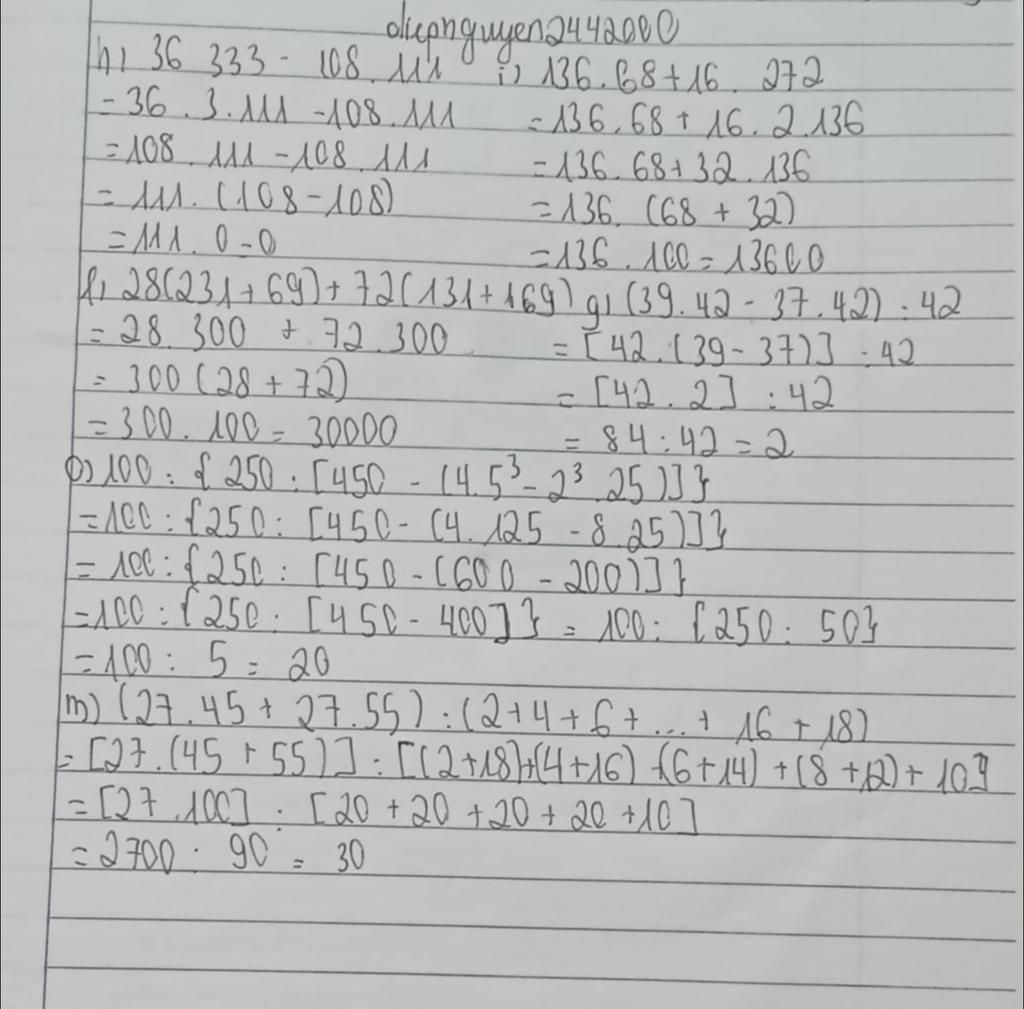 diepnguyen2442000
h, 36 333 - 108.111 i) 136.68+16. 272
=36 . 3.111 -108.111 =136.68+ 16. 2.136
=108. 111 -108. 111 =136. 68+32. 136
= 111. (108-108) =136. (68 + 32)
=111. 0=0 =136.100=13600
l, 28(231+69)+72(131+169) g, (39.42 - 37.42) : 42
= 28. 300 + 72.300 = [42.(39-37)] : 42
= 300 (28 + 72) = [42. 2] : 42
= 300. 100 = 30000 = 84:42 = 2
o) 100 : {250 : [450 - (4.5³ - 2³.25)]}
=100:{250: [450- (4. 125 - 8.25)]}
= 100:{250: [450-(600 -200)]}
=100:{250: [450- 400]} = 100: {250: 50}
=100: 5 = 20
m) (27.45+ 27.55) : (2+4+6+...+ 16 + 18)
= [27.(45 + 55)] : [(2+18)+(4+16) +(6+14) +(8 +12)+ 10]
= [27 .100] : [20 +20 +20 + 20 +10]
= 2700 : 90 = 30